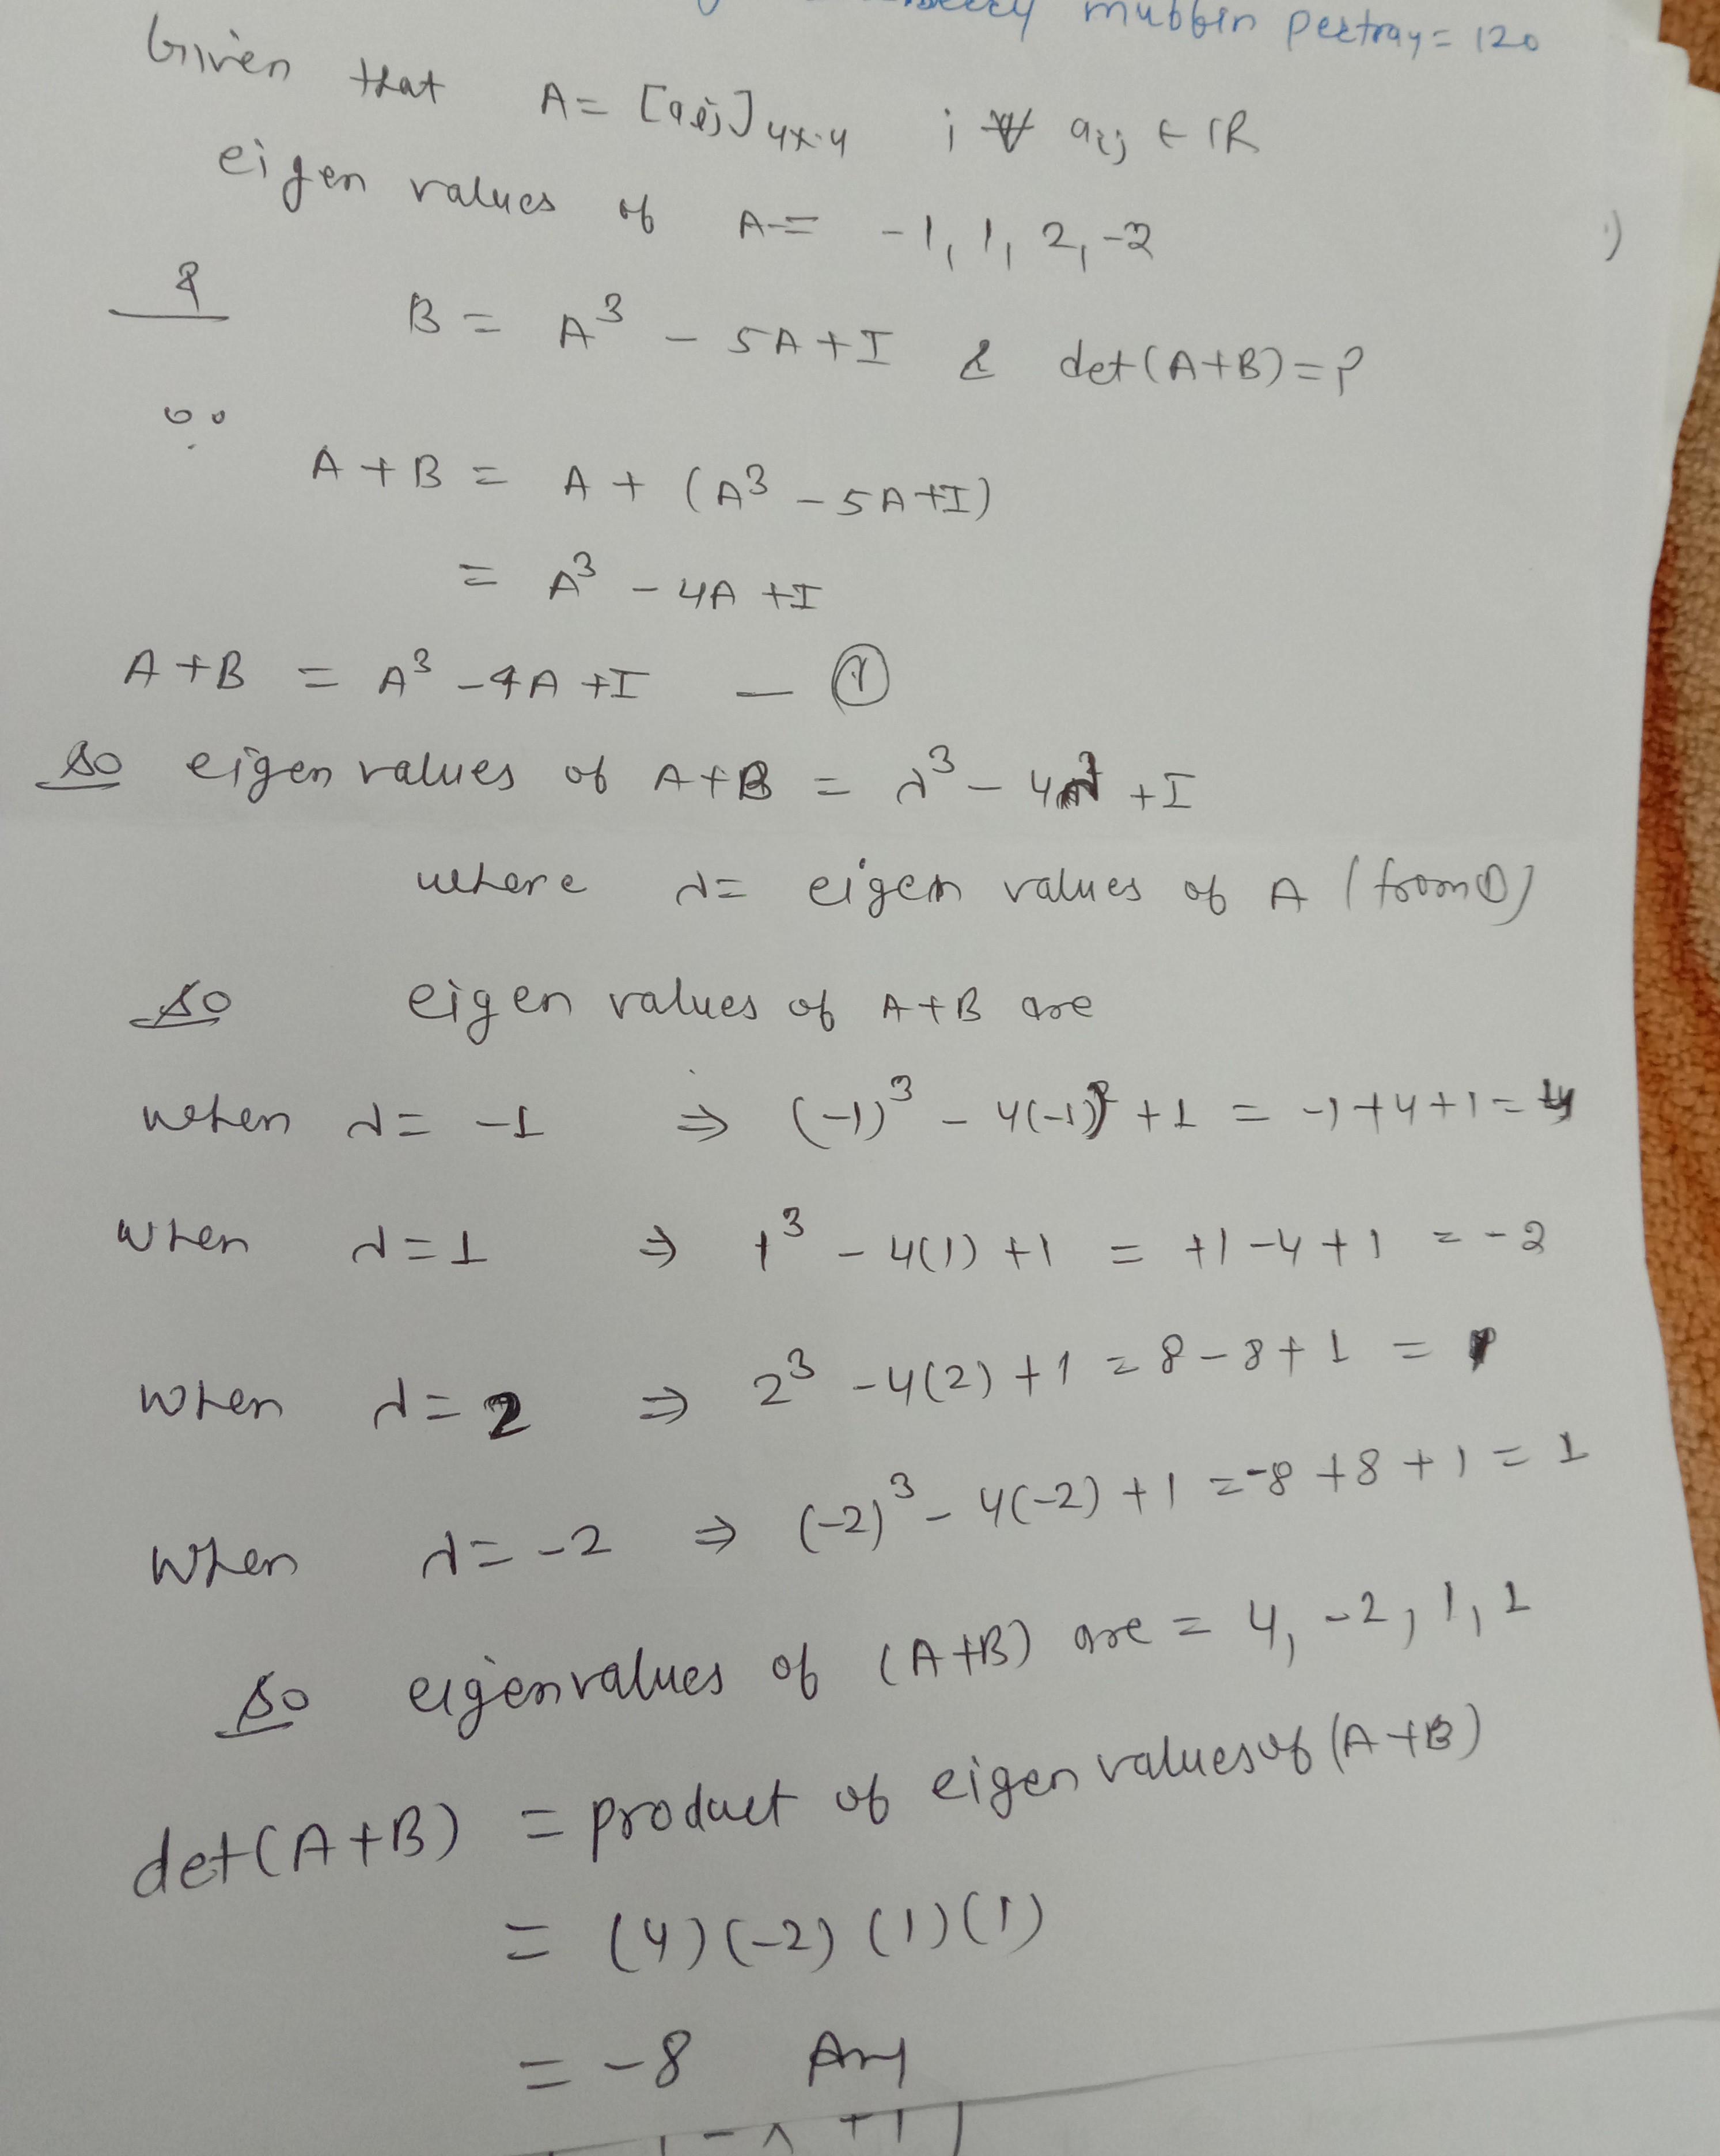 mubbin pertray = 120
Given that A = [aij]4×4 ; ∀ aij ∈ IR
eigen values of A = -1, 1, 2, -2
& B = A³ - 5A + I & det(A+B) = ?
∵
A + B = A + (A³ - 5A + I)
= A³ - 4A + I
A + B = A³ - 4A + I — ①
So eigen values of A+B = λ³ - 4λ + I
where λ = eigen values of A (from ①)
So eigen values of A+B are
when λ = -1 ⇒ (-1)³ - 4(-1) + 1 = -1 + 4 + 1 = 4
when λ = 1 ⇒ 1³ - 4(1) + 1 = +1 - 4 + 1 = -2
when λ = 2 ⇒ 2³ - 4(2) + 1 = 8 - 8 + 1 = 1
when λ = -2 ⇒ (-2)³ - 4(-2) + 1 = -8 + 8 + 1 = 1
So eigenvalues of (A+B) are = 4, -2, 1, 1
det(A+B) = product of eigen values of (A+B)
= (4)(-2)(1)(1)
= -8 Ans